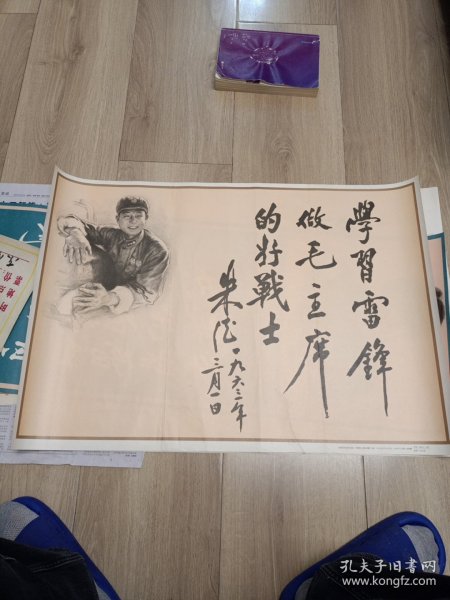 學習雷鋒
做毛主席
的好戰士
朱德
一九六三年
三月一日
孔夫子旧书网
www.kongfz.com